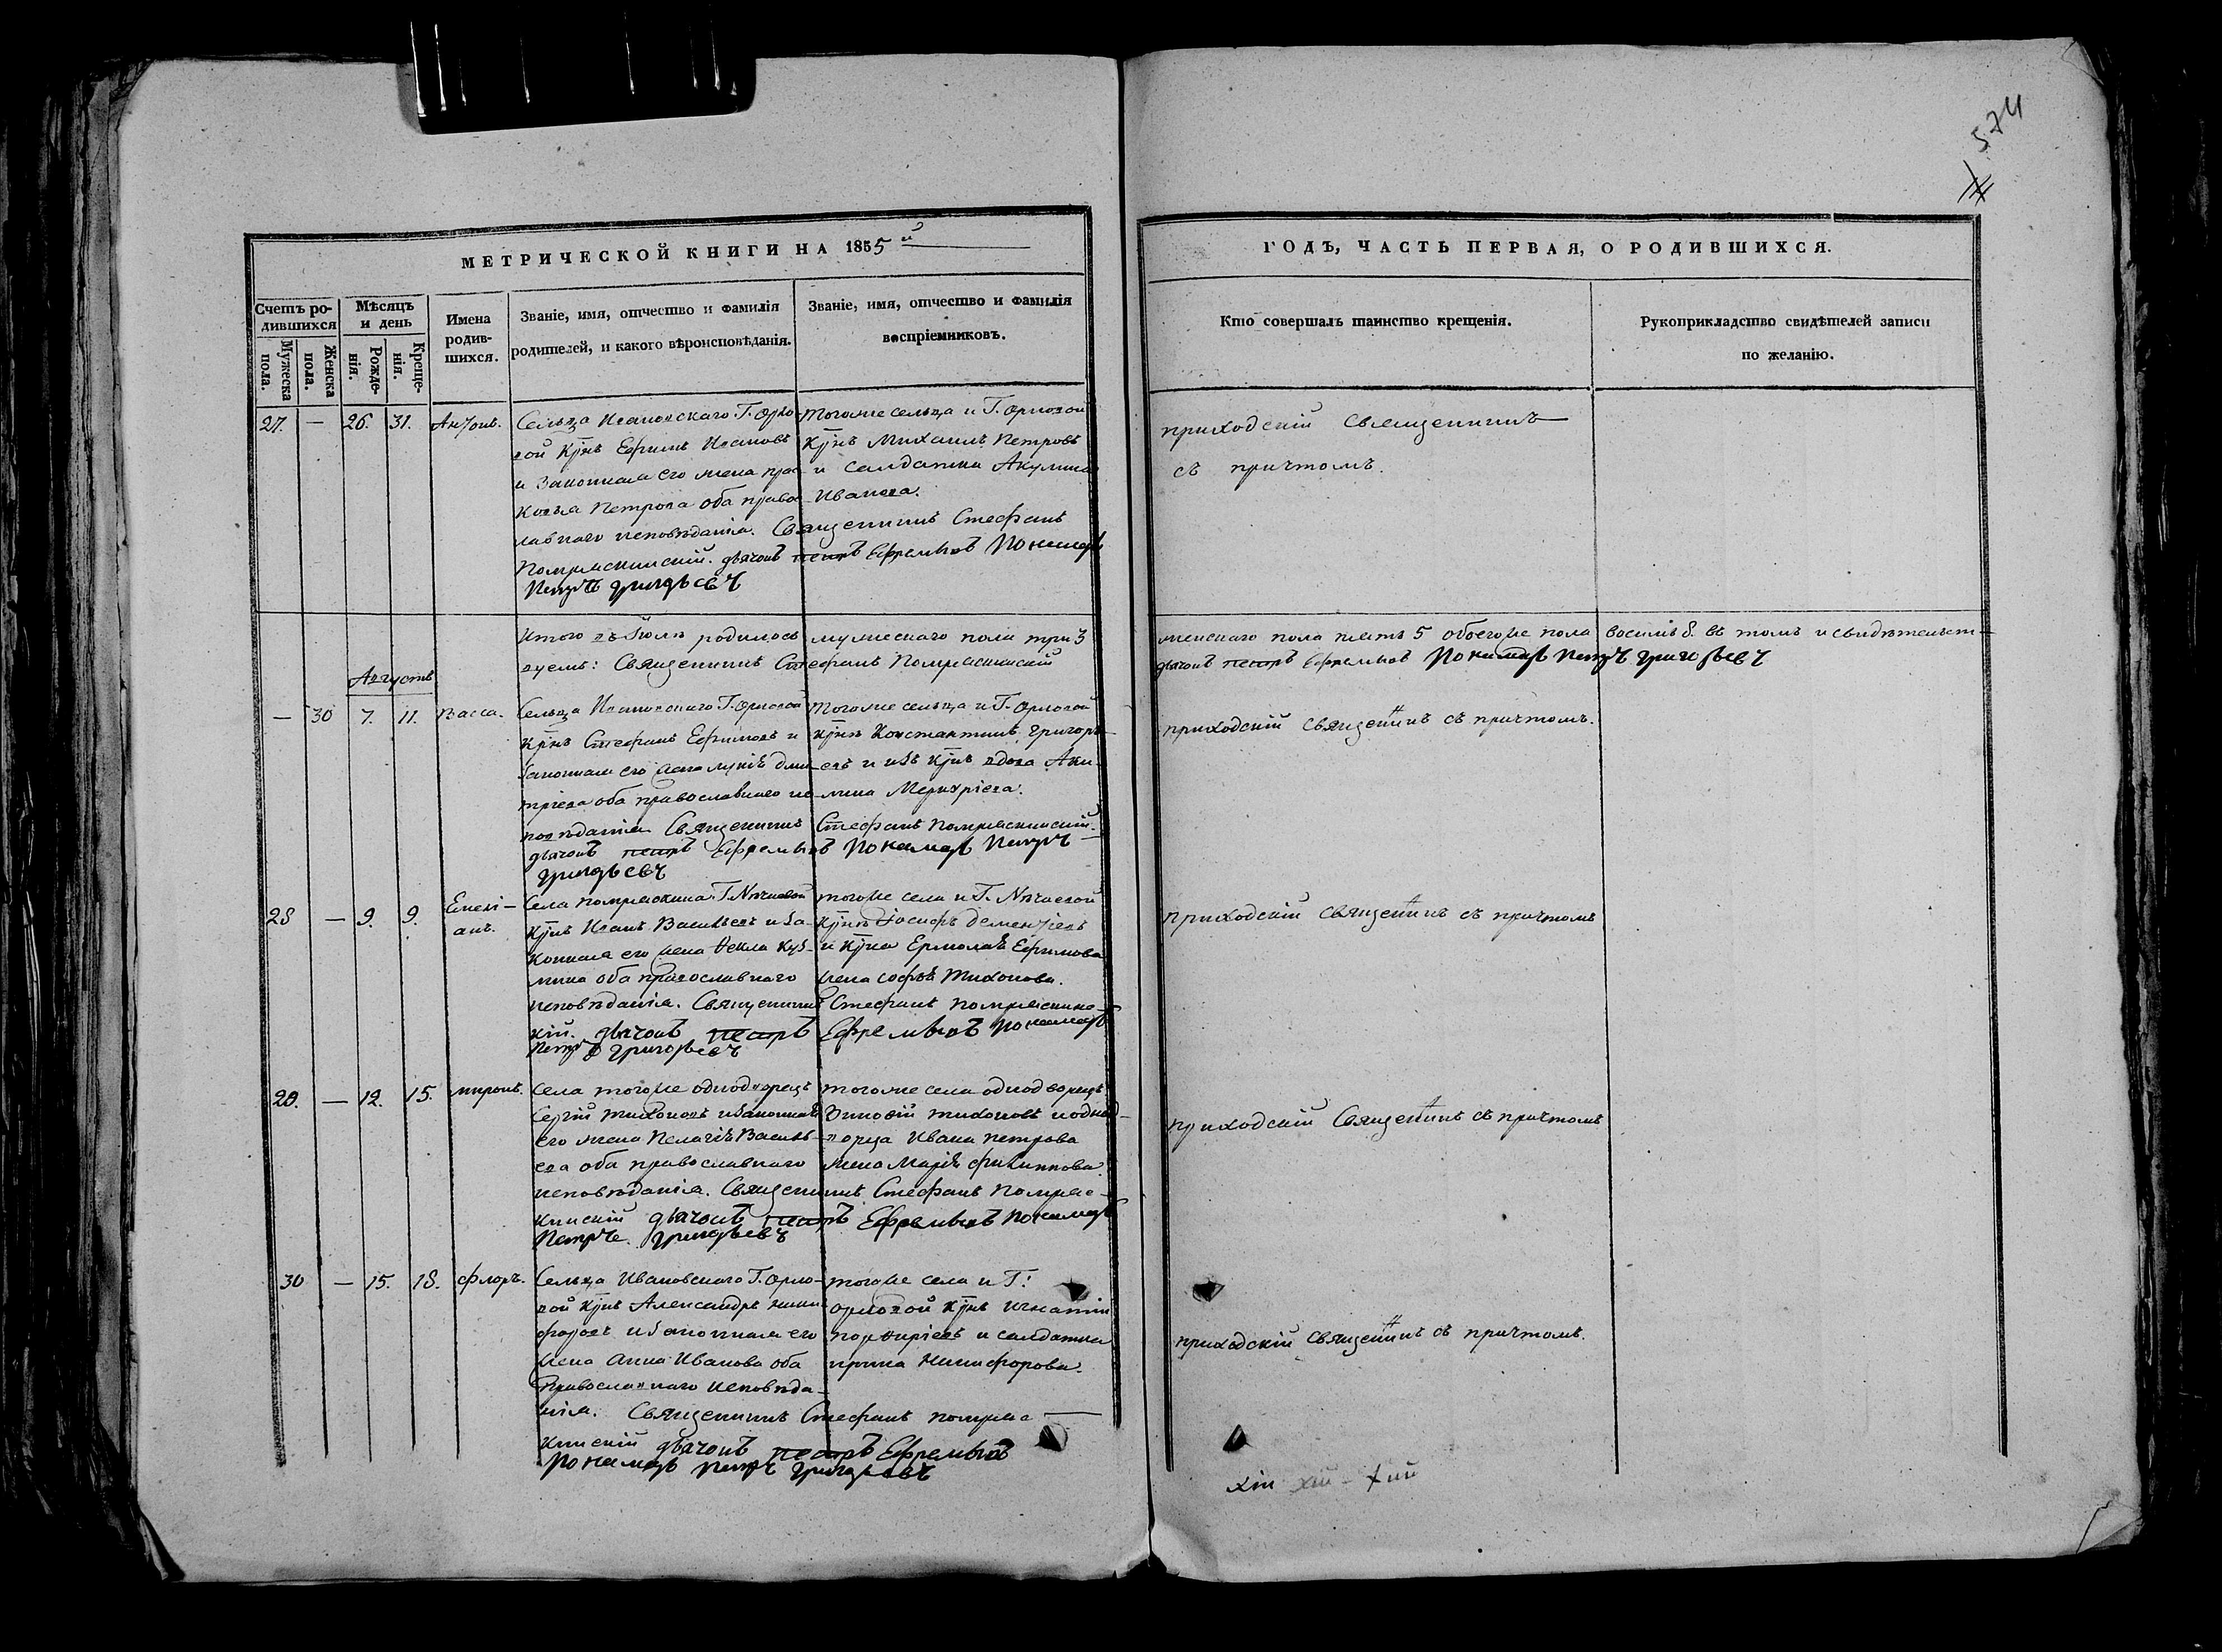 574
МЕТРИЧЕСКОЙ КНИГИ НА 1855 й
ГОДЪ, ЧАСТЬ ПЕРВАЯ, О РОДИВШИХСЯ.
Счетъ ро-
дившихся
Мужеска
пола.
Женска
пола.
Мѣсяцъ
и день
Рожде-
нія.
Креще-
нія.
Имена
родив-
шихся.
Званіе, имя, отчество и фамилія
родителей, и какого вѣроисповѣданія.
Званіе, имя, отчество и фамилія
воспріемниковъ.
Кто совершалъ таинство крещенія.
Рукоприкладство свидѣтелей записи
по желанію.
27. — 26. 31. Анѳонъ.
Сельца Ивановскаго Г. Орло-
вой Крнъ Ефимъ Ивановъ
и законная его жена Прас
ковья Петрова оба право
славнаго исповѣданія. Священникъ Стефанъ
дьячокъ Петръ Ефремовъ Пономарь
Петръ Григорьевъ
Тогоже сельца и Г. Орловой
Крнъ Михаилъ Петровъ
и салдатка Акулина
Иванова.
приходскій Священникъ
съ причтомъ.
Итого въ Іюлѣ родилось мужескаго пола три 3
женскаго пола пять 5 обоегоже пола восемь 8. въ томъ и свидѣтельст-
вуемъ: Священникъ Стефанъ
дьячокъ Петръ Ефремовъ Пономарь Петръ Григорьевъ
Августъ
— 30 7. 11. Васса.
Сельца Ивановскаго Г. Орловой
Крнъ Стефанъ Ефимовъ и
законная его жена Лукія Дми-
тріева оба православнаго ис-
повѣданія Священникъ Стефанъ
дьячокъ Петръ Ефремовъ Пономарь Петръ
Григорьевъ
Тогоже сельца и Г. Орловой
Крнъ Константинъ Григорь-
евъ и изъ Крнъ вдова Аки-
лина Меркуріева.
приходскій Священникъ съ причтомъ.
28 — 9. 9. Емелі-
анъ.
Крнъ Иванъ Васильевъ и за-
конная его жена Ѳекла Куз-
мина оба православнаго
исповѣданія. Священникъ Стефанъ
кій. дьячокъ Петръ Ефремовъ Пономарь
Петръ Григорьевъ
Крнъ Іосифъ Дементіевъ
и Крна Ермолая Ефимова
жена Софья Тихонова.
приходскій Священникъ съ причтомъ
29. — 12. 15. Миронъ.
Села тогоже однодворецъ
Сергій Тихоновъ и законная
его жена Пелагія Василь-
ева оба православнаго
исповѣданія. Священникъ Стефанъ
кинскій дьячокъ Петръ Ефремовъ Пономарь
Петръ Григорьевъ
Тогоже села однодворецъ
Зиновій Тихоновъ и однод-
ворца Ивана Петрова
жена Марія Филиппова.
приходскій Священникъ съ причтомъ
30 — 15. 18. Флоръ.
Сельца Ивановскаго Г. Орло-
вой Крнъ Александръ Ники-
форовъ и законная его
жена Анна Иванова оба
православнаго исповѣда-
нія. Священникъ Стефанъ
кинскій дьячокъ Петръ Ефремовъ
Пономарь Петръ Григорьевъ
тогоже села и Г:
Орловой Крнъ Игнатій
Порфиріевъ и салдатка
Ирина Никифорова.
приходскій Священникъ съ причтомъ.